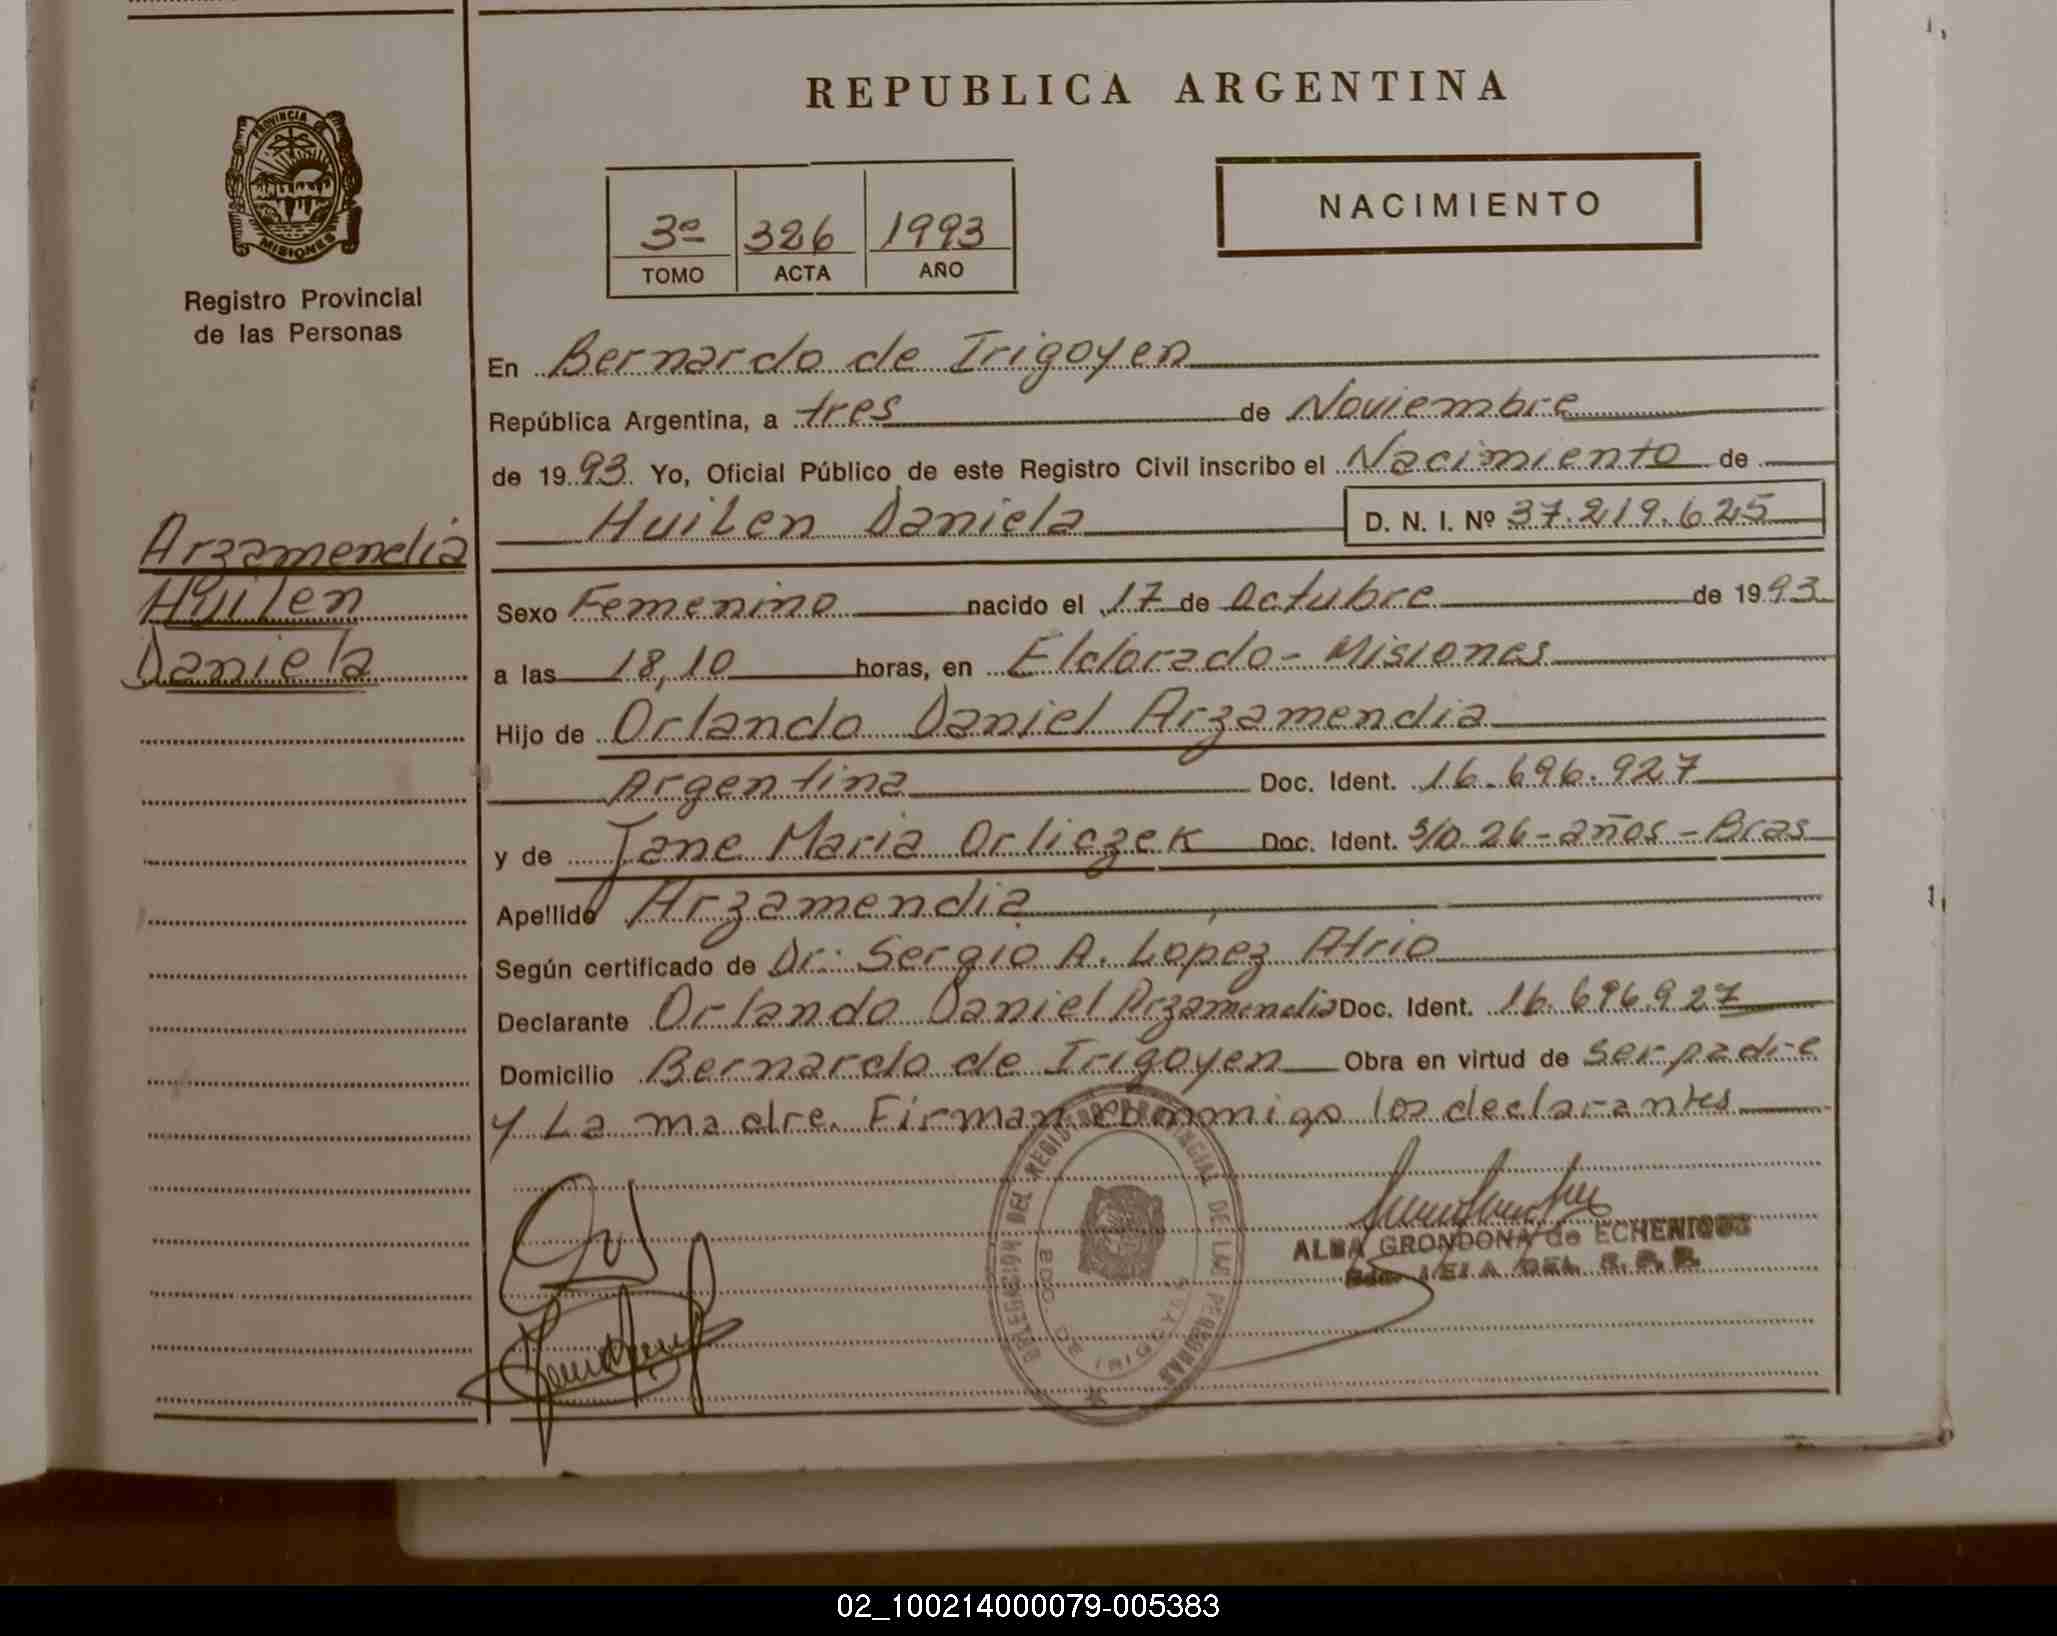 REPUBLICA ARGENTINA
PROVINCIA DE
MISIONES
Registro Provincial
de las Personas
3º 326 1993
TOMO ACTA AÑO
NACIMIENTO
En Bernardo de Irigoyen
República Argentina, a tres de Noviembre
de 1993. Yo, Oficial Público de este Registro Civil inscribo el Nacimiento de
Huilen Daniela D. N. I. Nº 37.219.625
Arzamendia
Huilen
Daniela
Sexo Femenino nacido el 17 de Octubre de 1993
a las 18,10 horas, en Eldorado - Misiones
Hijo de Orlando Daniel Arzamendia
Argentina Doc. Ident. 16.696.927
y de Jane Maria Orliczek Doc. Ident. S/D. 26-años-Bras
Apellido Arzamendia
Según certificado de Dr. Sergio A. Lopez Atrio
Declarante Orlando Daniel Arzamendia Doc. Ident. 16.696.927
Domicilio Bernardo de Irigoyen Obra en virtud de ser padre
y La madre. Firman conmigo los declarantes
DEL REGISTRO PROVINCIAL DE LAS PERSONAS
BDO. DE IRIGOYEN
ALBA GRONDONA de ECHENIQUE
02_100214000079-005383